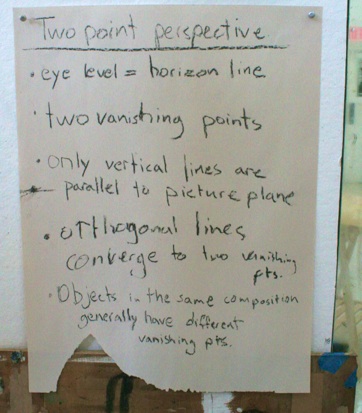 Two point perspective
• eye level = horizon line
• two vanishing points
• only vertical lines are
parallel to picture plane
• orthogonal lines
converge to two vanishing
pts.
• Objects in the same composition
generally have different
vanishing pts.